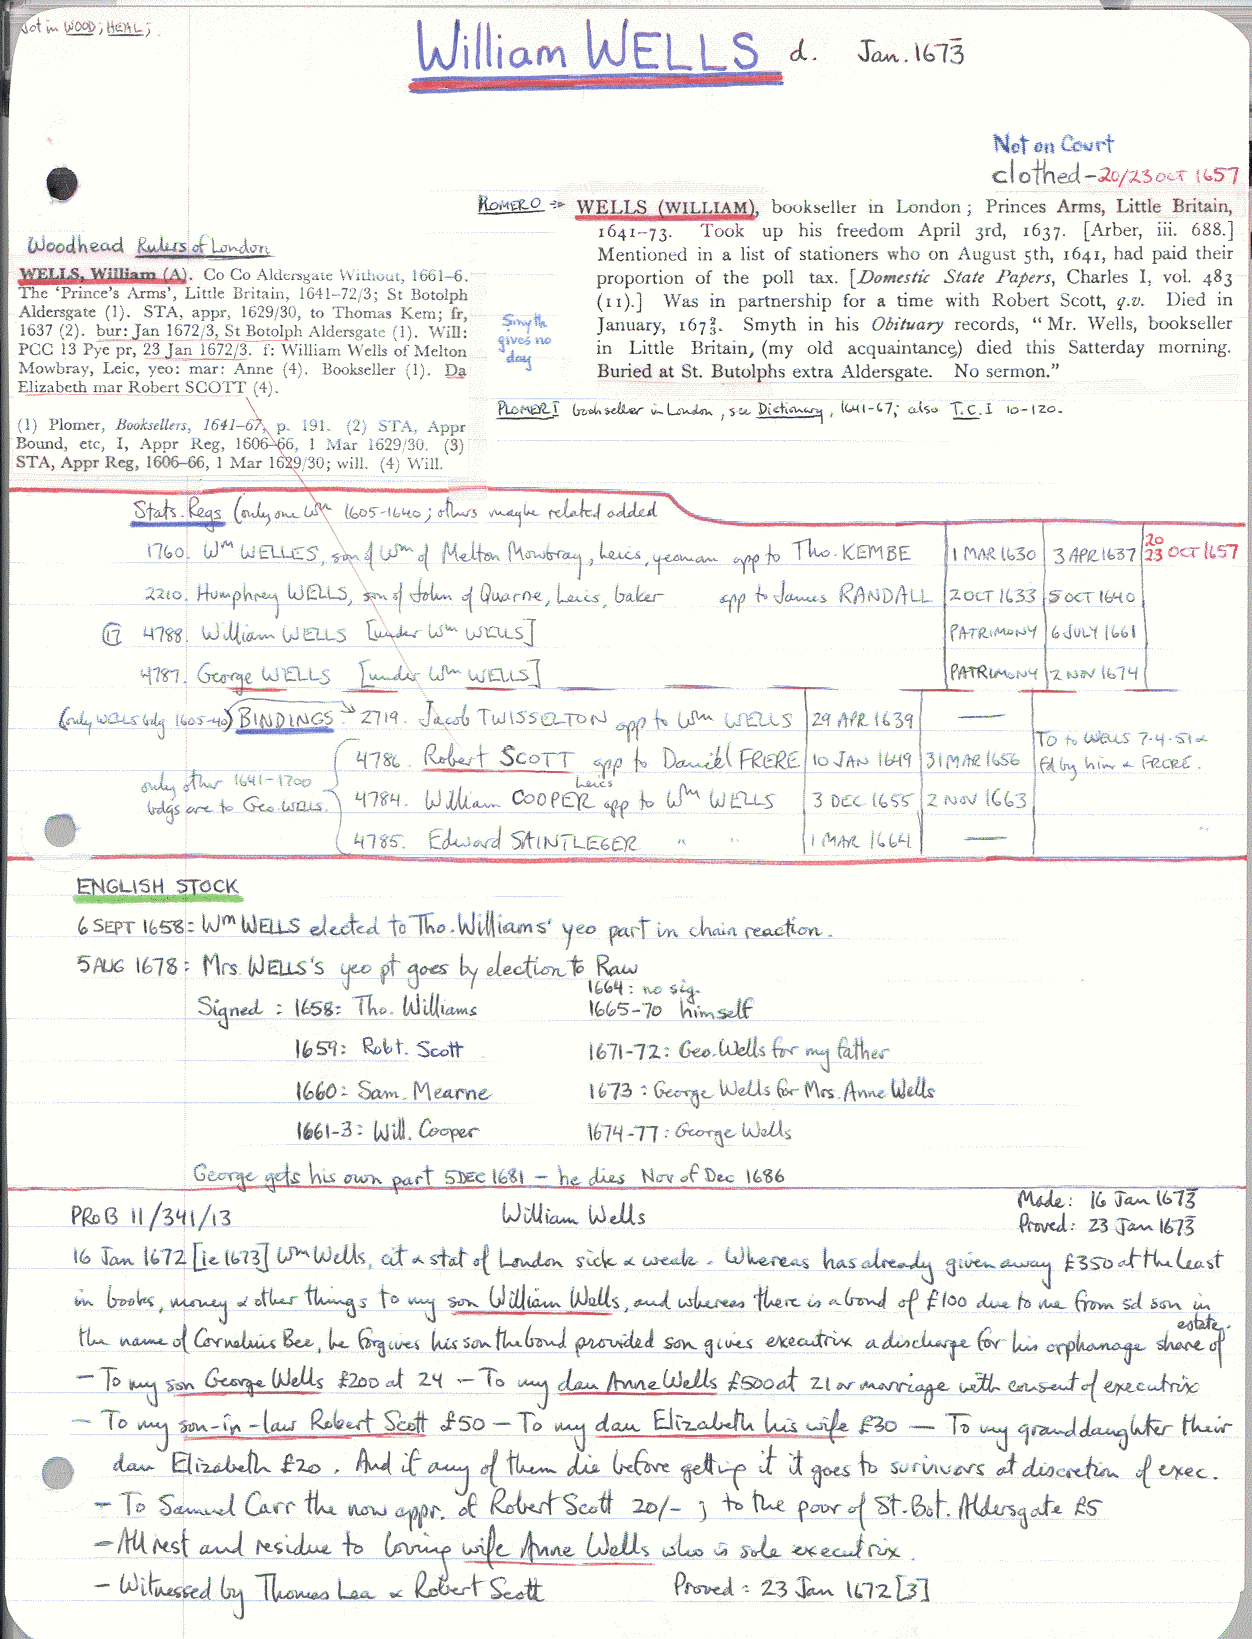 Not in WOOD; HEAL;
William WELLS d. Jan. 1673
Not on Court
clothed - 20/23 OCT 1657
Woodhead Rulers of London
WELLS, William (A). Co Co Aldersgate Without, 1661–6.
The ‘Prince's Arms’, Little Britain, 1641–72/3; St Botolph
Aldersgate (1). STA, appr, 1629/30, to Thomas Kem; fr,
1637 (2). bur: Jan 1672/3, St Botolph Aldersgate (1). Will:
PCC 13 Pye pr, 23 Jan 1672/3. f: William Wells of Melton
Mowbray, Leic, yeo: mar: Anne (4). Bookseller (1). Da
Elizabeth mar Robert SCOTT (4).
(1) Plomer, Booksellers, 1641–67, p. 191. (2) STA, Appr
Bound, etc, I, Appr Reg, 1606–66, 1 Mar 1629/30. (3)
STA, Appr Reg, 1606–66, 1 Mar 1629/30; will. (4) Will.
WELLS (WILLIAM), bookseller in London; Princes Arms, Little Britain,
1641–73. Took up his freedom April 3rd, 1637. [Arber, iii. 688.]
Mentioned in a list of stationers who on August 5th, 1641, had paid their
proportion of the poll tax. [Domestic State Papers, Charles I, vol. 483
(11).] Was in partnership for a time with Robert Scott, q.v. Died in
January, 167⅔. Smyth in his Obituary records, “Mr. Wells, bookseller
in Little Britain, (my old acquaintance) died this Satterday morning.
Buried at St. Butolphs extra Aldersgate. No sermon.”
Smyth
gives no
day
PLOMER I bookseller in London, see Dictionary, 1641-67; also T.C. I 10-120.
Stats. Regs (only one Wm 1605-1640; others maybe related added
1760. Wm WELLES, son of Wm of Melton Mowbray, Leics, yeoman app to Tho. KEMBE 1 MAR 1630 3 APR 1637 20/23 OCT 1657
2210. Humphrey WELLS, son of John of Quarne, Leics, baker app to James RANDALL 2 OCT 1633 5 OCT 1640
4788. William WELLS [under Wm WELLS] PATRIMONY 6 JULY 1661
4787. George WELLS [under Wm WELLS] PATRIMONY 2 NOV 1674
(only WELLS bdg 1605-40) BINDINGS: 2719. Jacob TWISSELTON app to Wm WELLS 29 APR 1639 —
4786. Robert SCOTT app to Daniel FRERE 10 JAN 1649 31 MAR 1656 To to WELLS 7.4.51 & fd by him & FRERE.
only other 1641-1700
bdgs are to Geo. WELLS.
4784. William COOPER app to Wm WELLS 3 DEC 1655 2 NOV 1663
4785. Edward SAINTLEGER " " 1 MAR 1664 —
ENGLISH STOCK
6 SEPT 1658: Wm WELLS elected to Tho. Williams' yeo part in chain reaction.
5 AUG 1678: Mrs. WELLS's yeo pt goes by election to Raw
Signed: 1658: Tho. Williams
1659: Robt. Scott
1660: Sam. Mearne
1661-3: Will. Cooper
1664: no sig.
1665-70 himself
1671-72: Geo. Wells for my father
1673: George Wells for Mrs. Anne Wells
1674-77: George Wells
George gets his own part 5 DEC 1681 – he dies Nov of Dec 1686
PROB 11/341/13 William Wells
Made: 16 Jan 1673
Proved: 23 Jan 1673
16 Jan 1672 [ie 1673] Wm Wells, cit & stat of London sick & weak. Whereas has already given away £350 at the least
in books, money & other things to my son William Wells, and whereas there is a bond of £100 due to me from sd son in
the name of Cornelius Bee, he forgives his son the bond provided son gives executrix a discharge for his orphanage share of estate.
– To my son George Wells £200 at 24 – To my dau Anne Wells £500 at 21 or marriage with consent of executrix
– To my son-in-law Robert Scott £50 – To my dau Elizabeth his wife £30 – To my granddaughter their
dau Elizabeth £20. And if any of them die before getting it it goes to survivors at discretion of exec.
– To Samuel Carr the now appr. of Robert Scott 20/- ; to the poor of St. Bot. Aldersgate £5
– All rest and residue to loving wife Anne Wells who is sole executrix.
– Witnessed by Thomas Lea & Robert Scott Proved: 23 Jan 1672 [3]